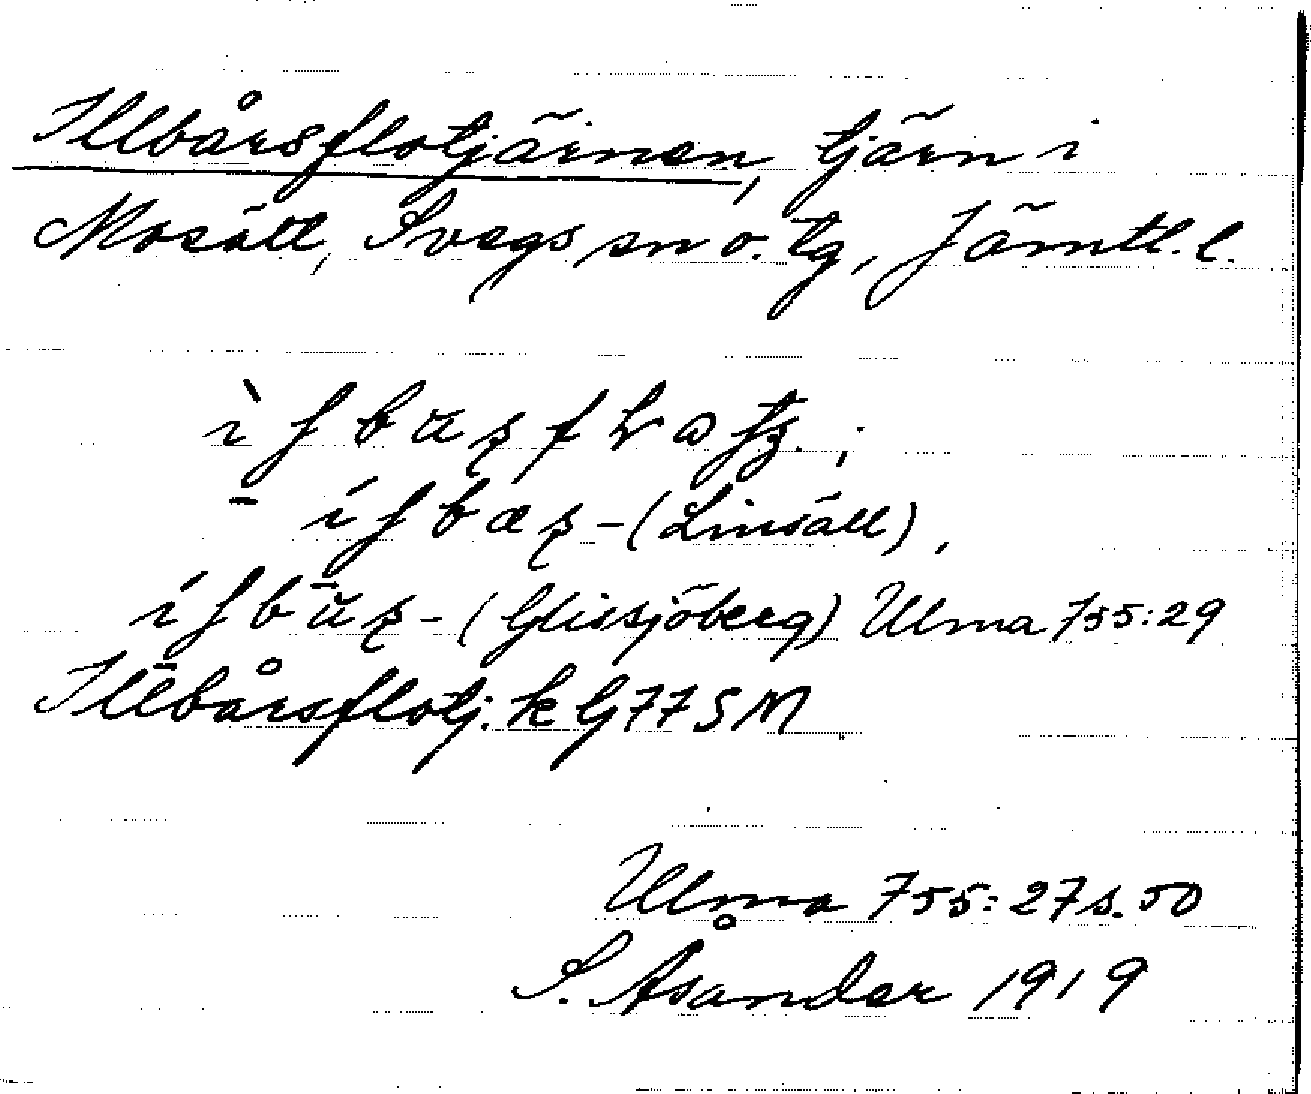 Illbårsflotjärnen, tjärn i
Mosätt, Svegs sn o. tg, Jämtl. l.
(Linsäll),
(Glissjöberg) Ulma 755:29
Illbårsflotj. k G 77 SM
Ulma 755:27 s. 50
S. Åsander 1919